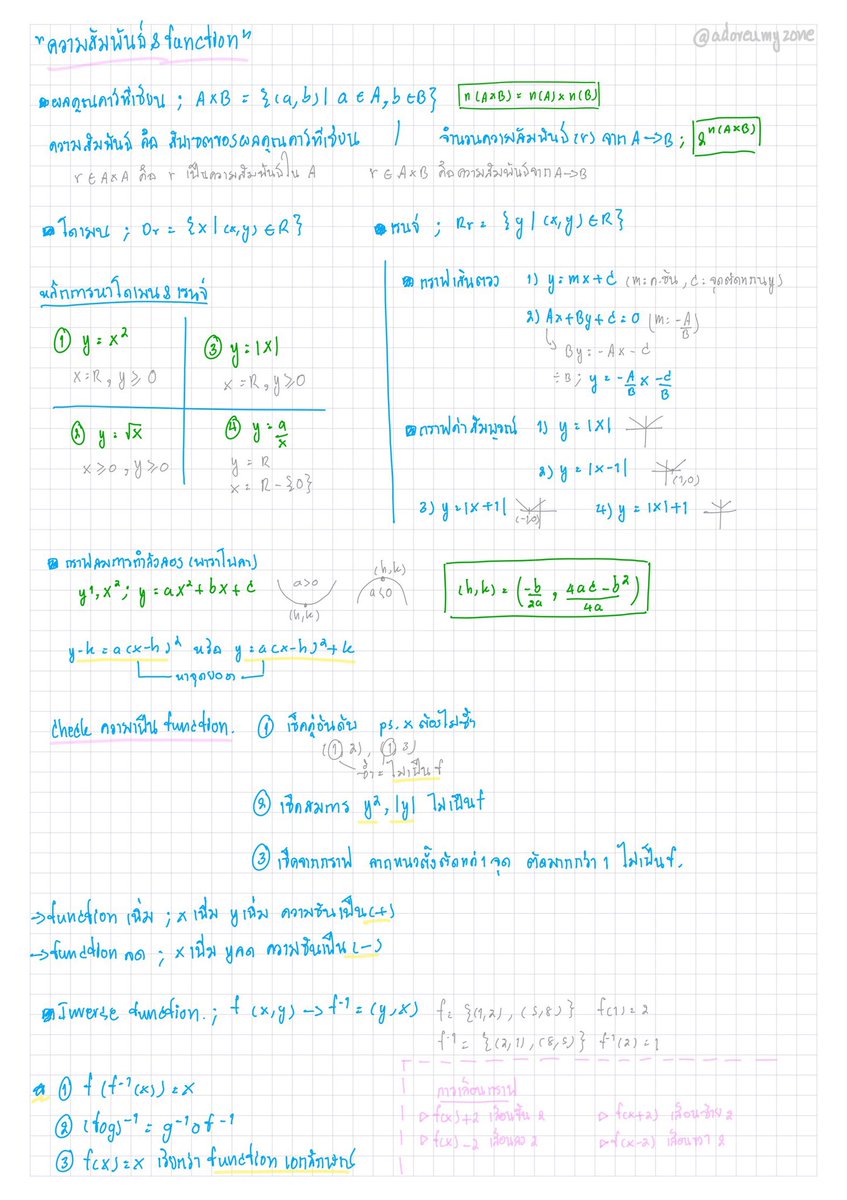 "ความสัมพันธ์ & function"
@adoreumyzone
ผลคูณคาร์ทีเซียน ; A×B = {(a,b) | a ∈ A, b ∈ B}
n(A×B) = n(A) × n(B)
ความสัมพันธ์ คือ สับเซตของผลคูณคาร์ทีเซียน
จำนวนความสัมพันธ์ (r) จาก A→B ; 2^n(A×B)
r ∈ A×A คือ r เป็นความสัมพันธ์ใน A
r ∈ A×B คือ ความสัมพันธ์จาก A→B
โดเมน ; Dr = {x | (x,y) ∈ R}
เรนจ์ ; Rr = {y | (x,y) ∈ R}
หลักการหาโดเมน & เรนจ์
① y = x²
x = R, y ≥ 0
③ y = |x|
x = R, y ≥ 0
② y = √x
x ≥ 0, y ≥ 0
④ y = a/x
y = R
x = R - {0}
กราฟเส้นตรง 1) y = mx + c (m = ค.ชัน, c = จุดตัดแกน y)
2) Ax + By + c = 0 (m: -A/B)
By = -Ax - c
÷B ; y = -A/B x -c/B
กราฟค่าสัมบูรณ์ 1) y = |x|
2) y = |x-1|
(1,0)
3) y = |x+1|
(-1,0)
4) y = |x|+1
กราฟสมการกำลังสอง (พาราโบลา)
y¹, x² ; y = ax² + bx + c
a>0
(h,k)
(h,k)
a<0
(h,k) = (-b/2a, 4ac-b²/4a)
y-k = a(x-h)² หรือ y = a(x-h)²+k
หาจุดยอด
Check ความเป็น function.
① เช็คคู่อันดับ ps. x ต้องไม่ซ้ำ
(1,2), (1,3)
ซ้ำ = ไม่เป็น f
② เช็คสมการ y², |y| ไม่เป็น f
③ เช็คจากกราฟ ลากแนวตั้งตัดแค่ 1 จุด ตัดมากกว่า 1 ไม่เป็น f.
→ function เพิ่ม ; x เพิ่ม y เพิ่ม ความชันเป็น (+)
→ function ลด ; x เพิ่ม y ลด ความชันเป็น (-)
Inverse function. ; f (x,y) → f⁻¹ = (y,x)
f = {(1,2), (5,8)} f(1) = 2
f⁻¹ = {(2,1), (8,5)} f⁻¹(2) = 1
① f(f⁻¹(x)) = x
② (fog)⁻¹ = g⁻¹of⁻¹
③ f(x) = x เรียกว่า function เอกลักษณ์
การเลื่อนกราฟ
▷ f(x)+2 เลื่อนขึ้น 2
▷ f(x+2) เลื่อนซ้าย 2
▷ f(x)-2 เลื่อนลง 2
▷ f(x-2) เลื่อนขวา 2